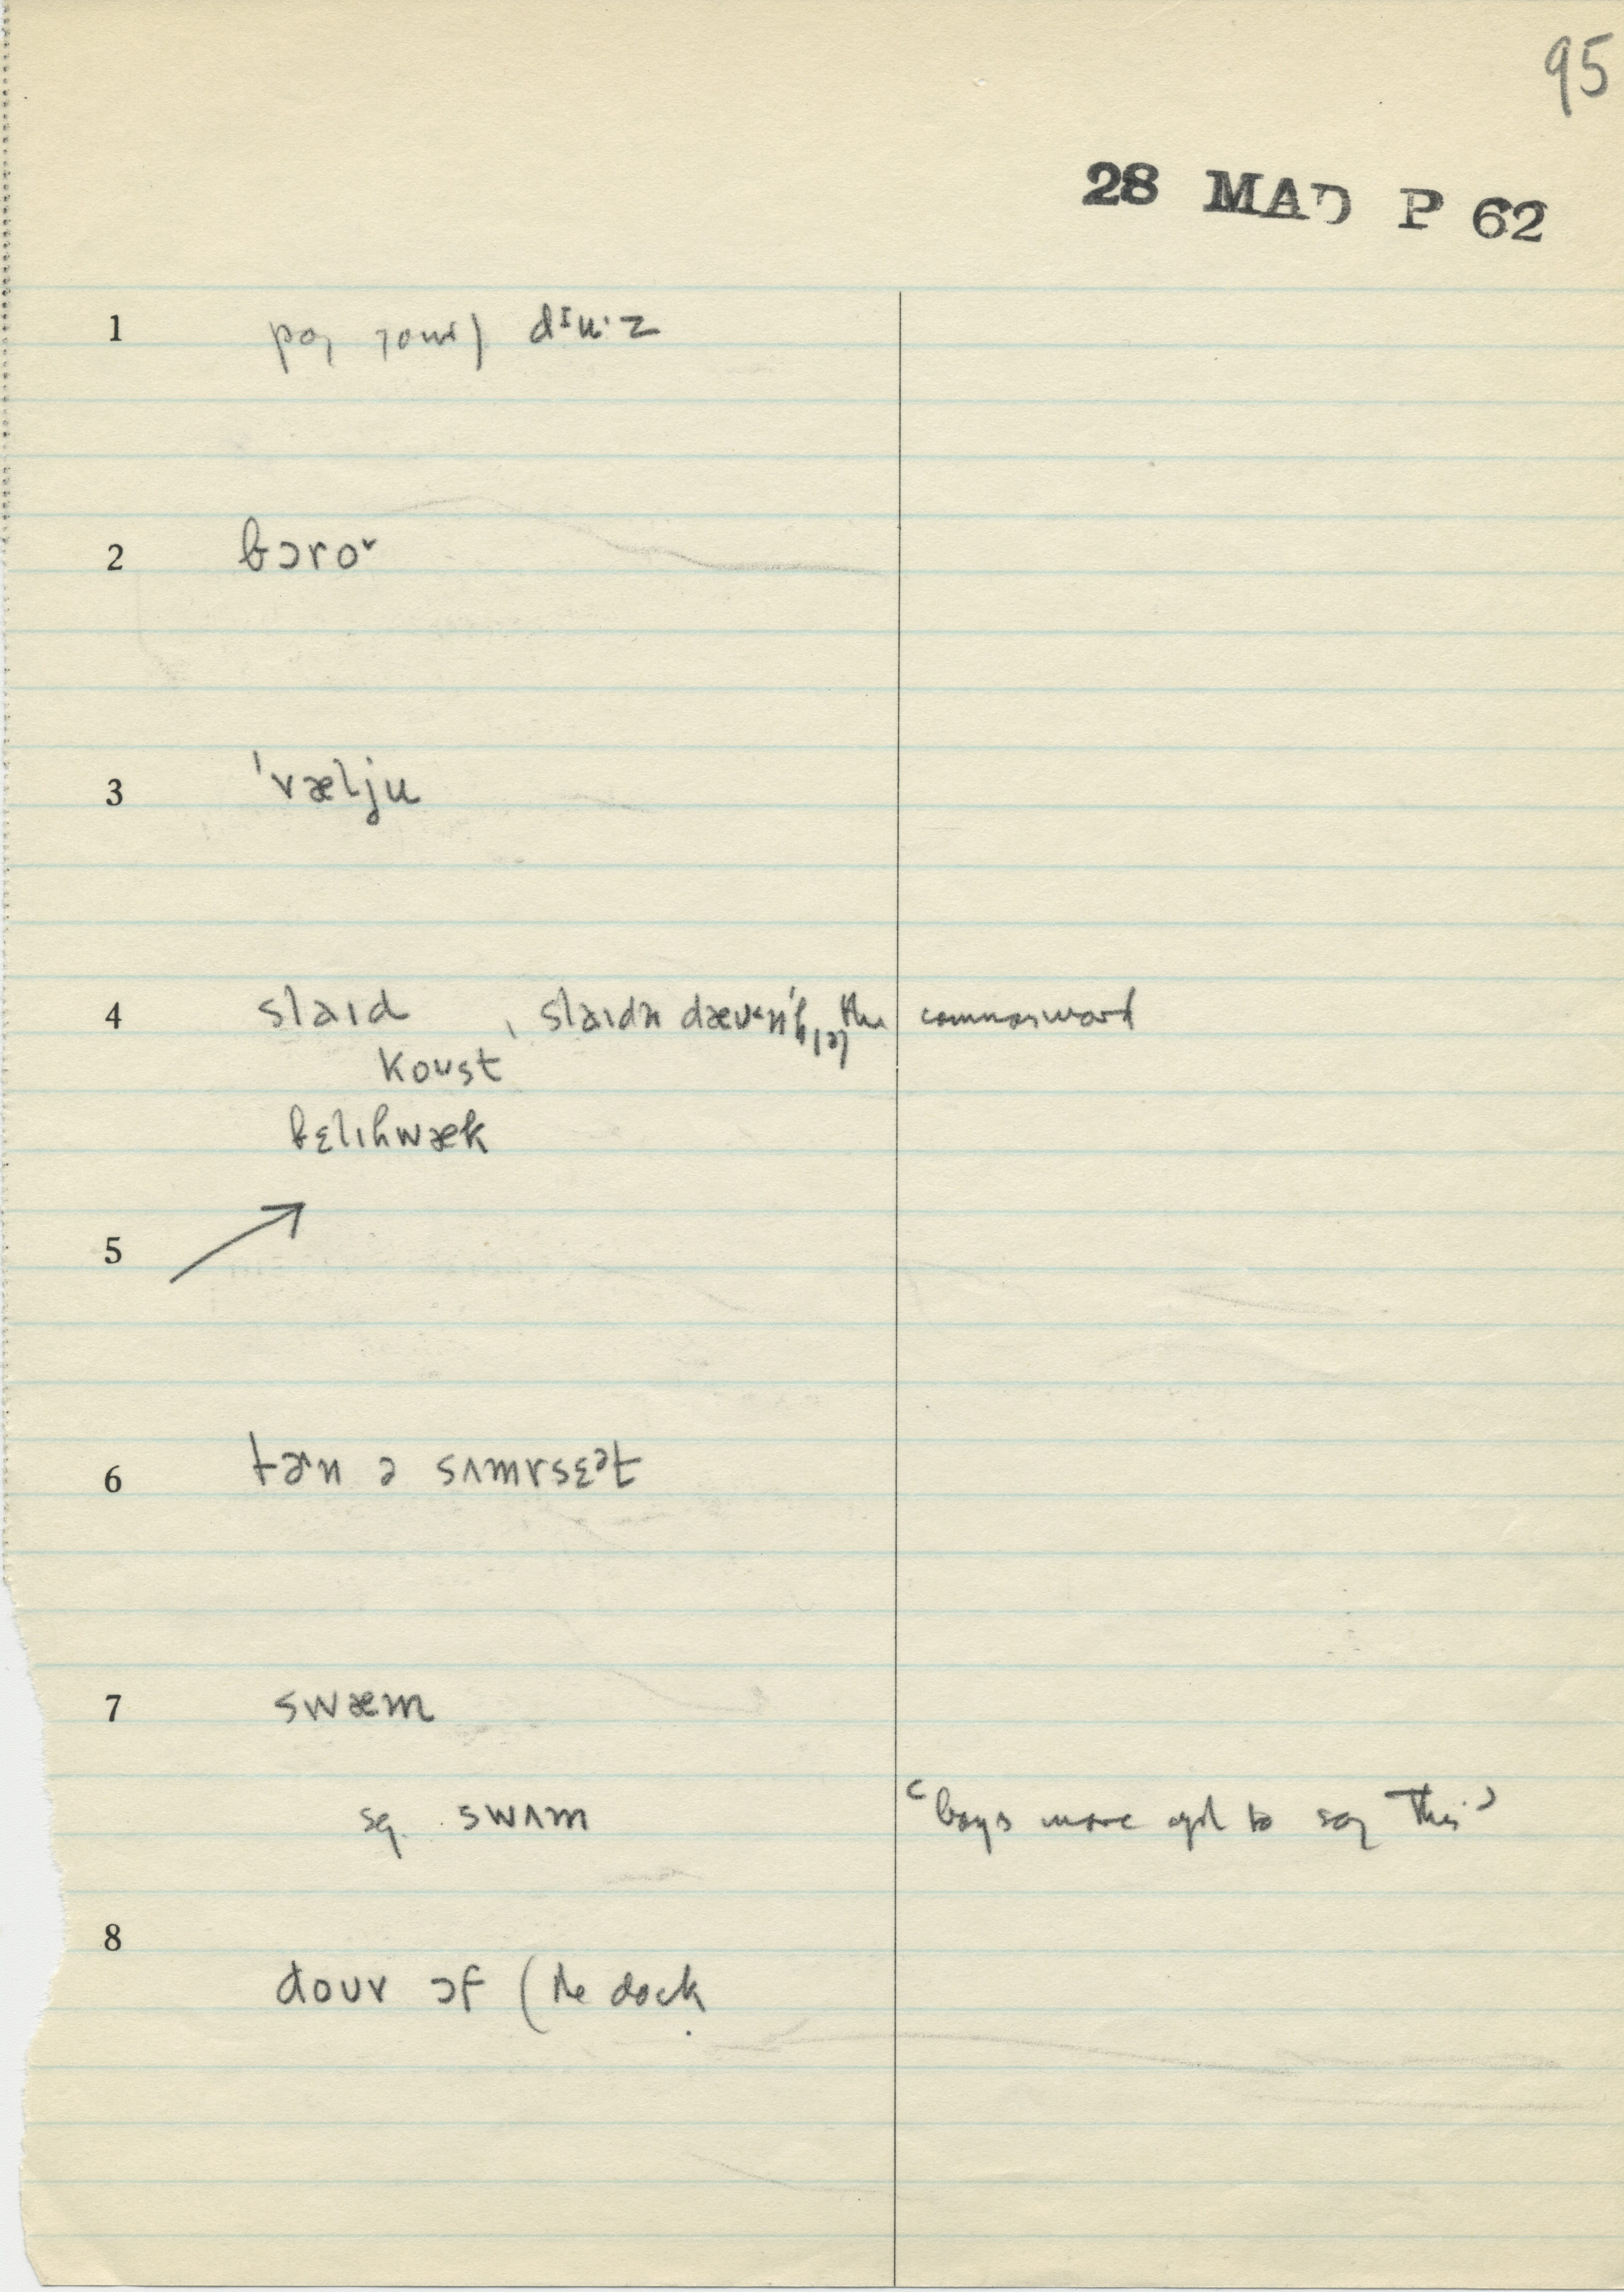 95
28 MAD P 62
1 pay your) dɪu·z
2 bɔroᵛ
3 ˈvælju
4 slaɪd , slaɪdn the common word
koust
bɛlɪhwæk
5
6 ə sʌmrsɛət
7 swæm
sq. swʌm
"boys more apt to say this"
8 douv ɔf (the dock